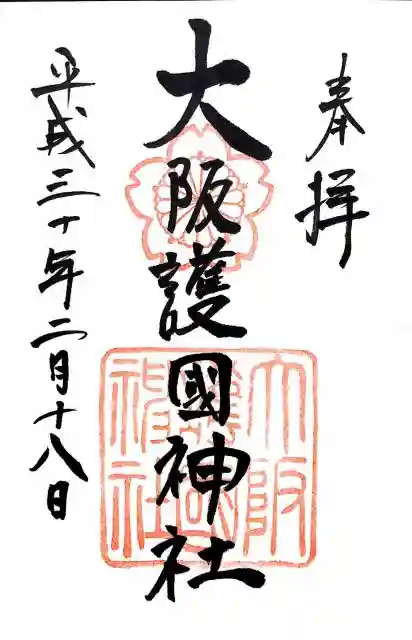 奉拝
大阪護國神社
平成三十年二月十八日
大阪
護國
神社